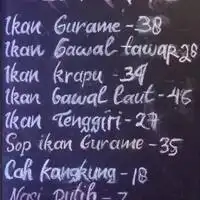 Ikan Gurame - 38
Ikan bawal tawar 28
Ikan krapu - 34
Ikan bawal laut - 45
Ikan Tenggiri - 27
Sop ikan Gurame - 35
Cah kangkung - 18
Nasi putih - 7